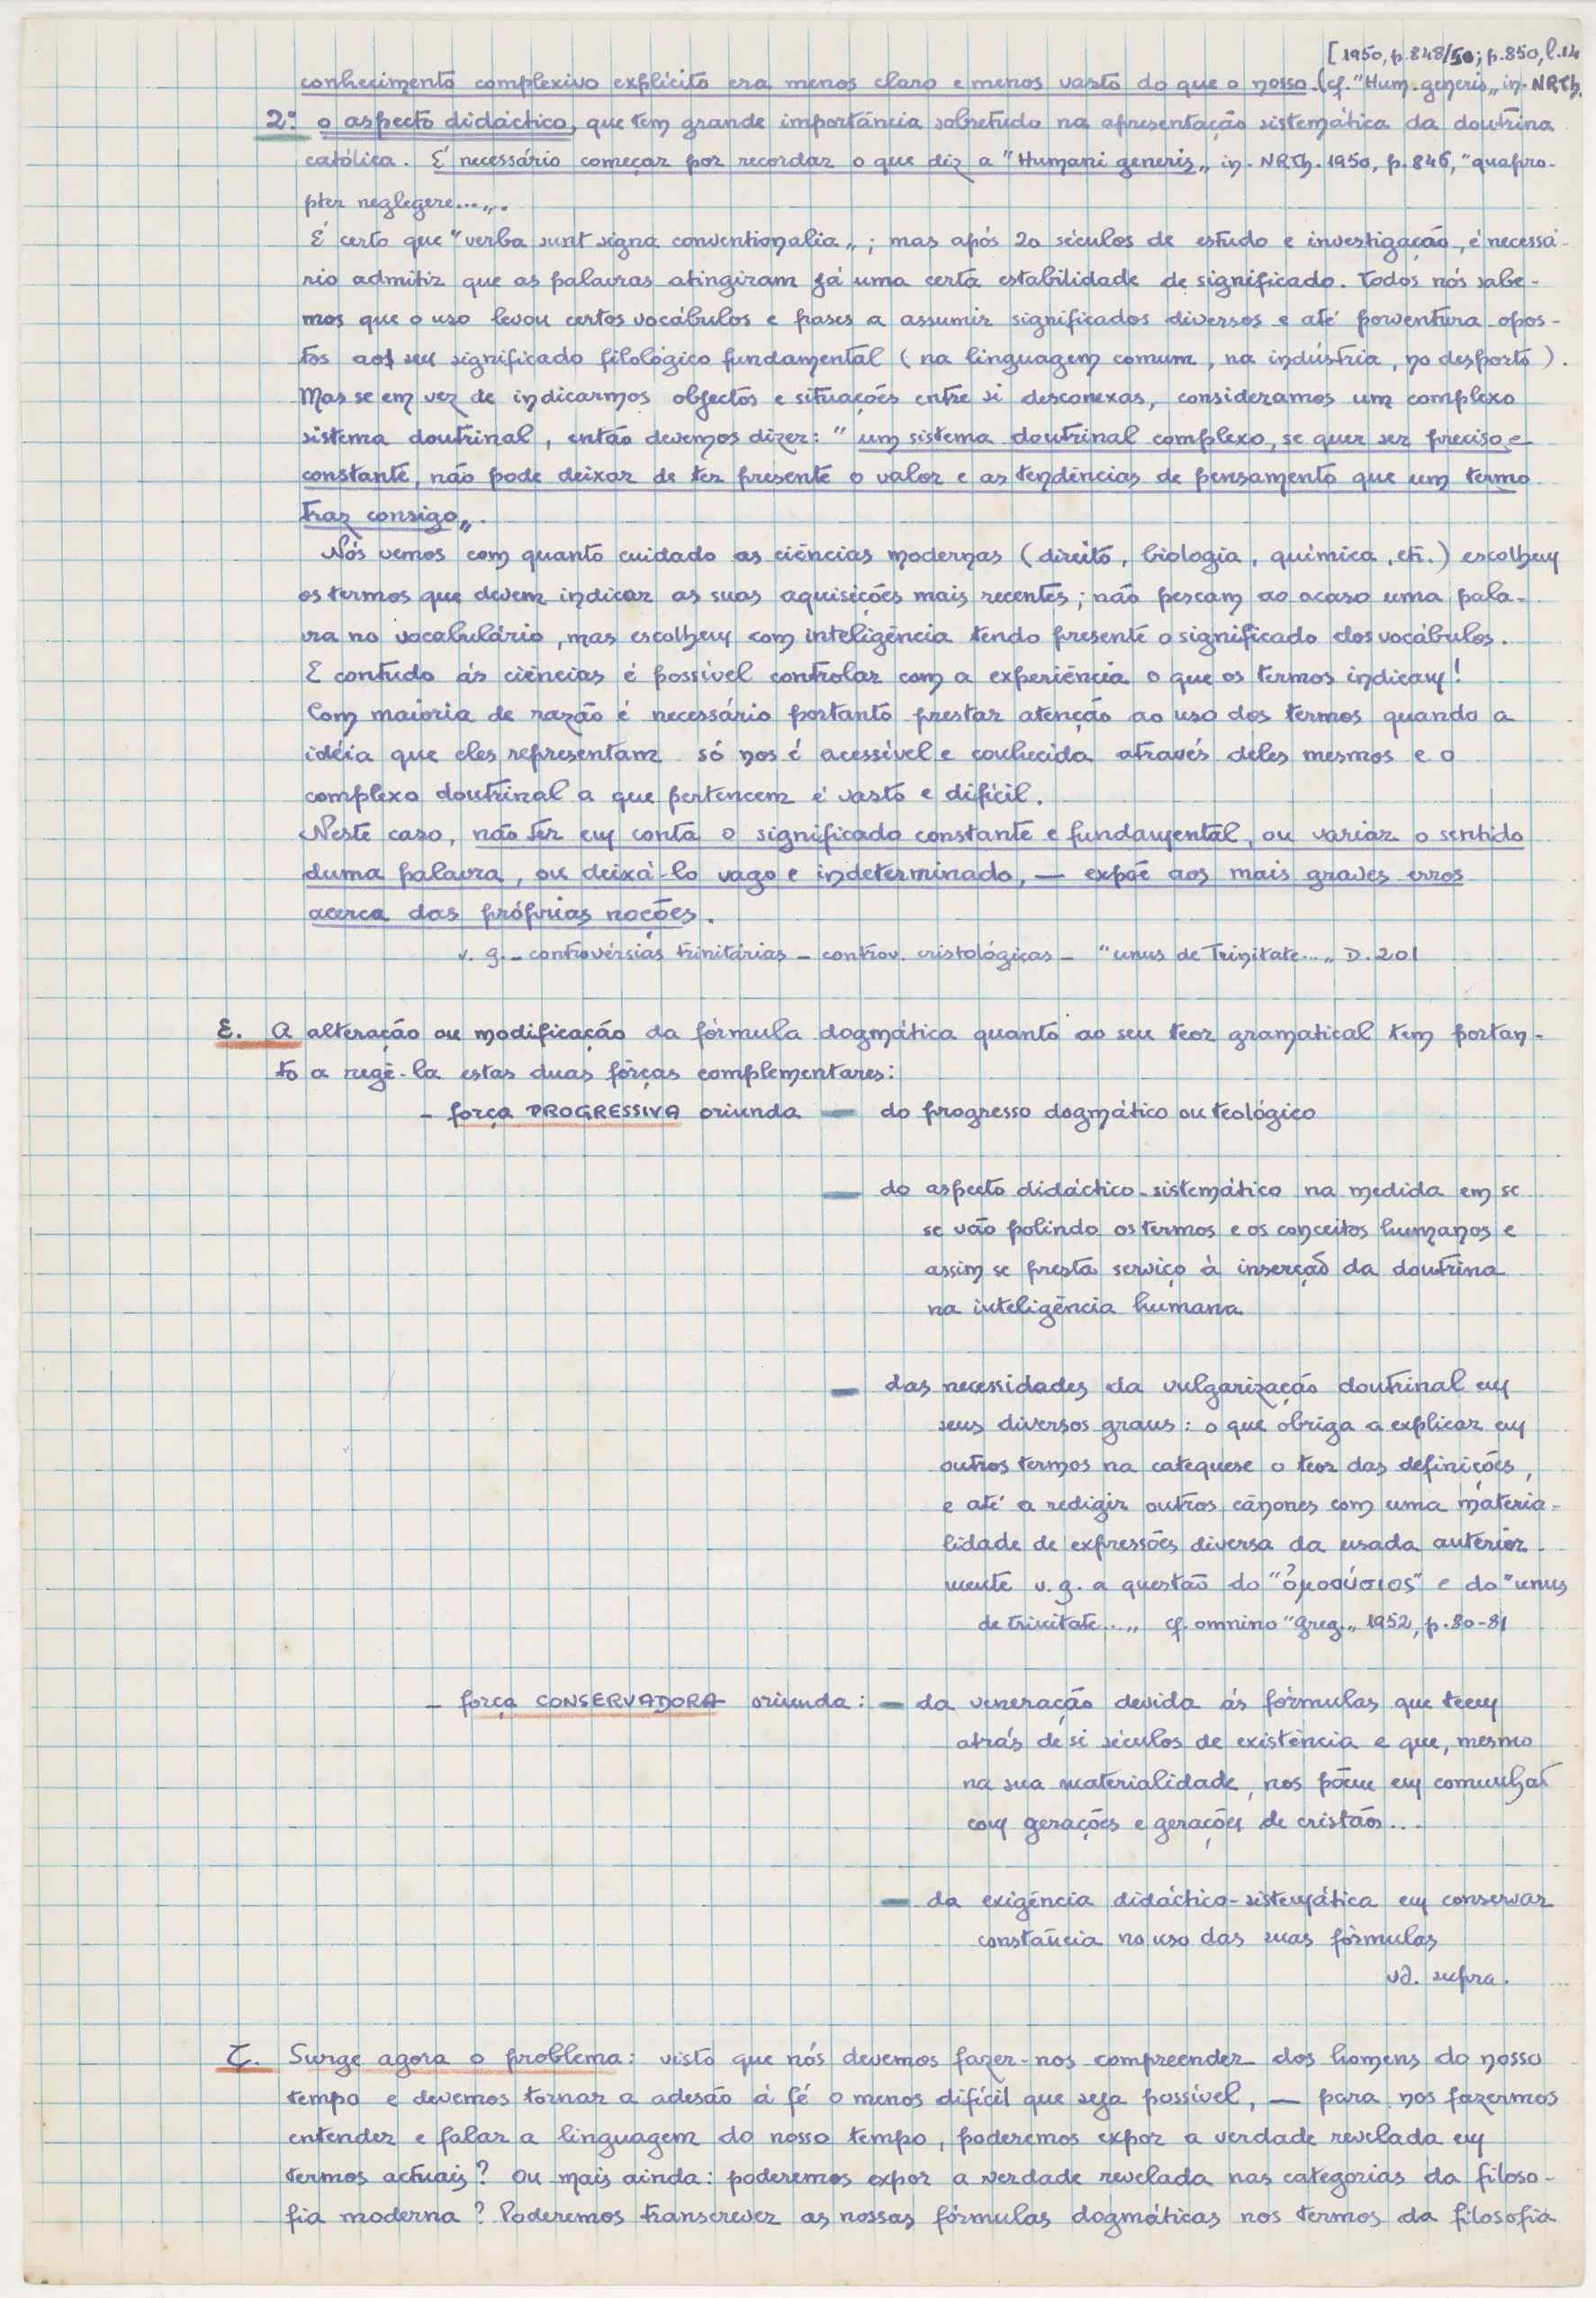 [1950, p.848/50; p.850, l.14
conhecimento complexivo explícito era menos claro e menos vasto do que o nosso (cf. "Hum. generis„ in NRTh.
2º o aspecto didáctico, que tem grande importância sobretudo na apresentação sistemática da doutrina
católica. É necessário começar por recordar o que diz a "Humani generis„ in NRTh. 1950, p. 846, "quapro-
pter neglegere...„.
É certo que "verba sunt signa conventionalia„; mas após 20 séculos de estudo e investigação, é necessá-
rio admitir que as palavras atingiram já uma certa estabilidade de significado. Todos nós sabe-
mos que o uso levou certos vocábulos e frases a assumir significados diversos e até porventura opos-
tos ao seu significado filológico fundamental (na linguagem comum, na indústria, no desporto).
Mas se em vez de indicarmos objectos e situações entre si desconexas, consideramos um complexo
sistema doutrinal, então devemos dizer: "um sistema doutrinal complexo, se quer ser preciso e
constante, não pode deixar de ter presente o valor e as tendências de pensamento que um termo
traz consigo„.
Nós vemos com quanto cuidado as ciências modernas (direito, biologia, química, etc.) escolhem
os termos que devem indicar as suas aquisições mais recentes; não pescam ao acaso uma pala-
vra no vocabulário, mas escolhem com inteligência tendo presente o significado dos vocábulos.
E contudo ás ciências é possível controlar com a experiência o que os termos indicam!
Com maioria de razão é necessário portanto prestar atenção ao uso dos termos quando a
idéia que eles representam só nos é acessível e conhecida através deles mesmos e o
complexo doutrinal a que pertencem é vasto e difícil.
Neste caso, não ter em conta o significado constante e fundamental, ou variar o sentido
duma palavra, ou deixá-lo vago e indeterminado, — expõe aos mais graves erros
acerca das próprias noções.
v. g. – controvérsias trinitárias – controv. cristológicas – "unus de Trinitate...„ D. 201
E. A alteração ou modificação da fórmula dogmática quanto ao seu teor gramatical tem portan-
to a regê-la estas duas fôrças complementares:
– força PROGRESSIVA oriunda — do progresso dogmático ou teológico
— do aspecto didáctico-sistemático na medida em se
se vão polindo os termos e os conceitos humanos e
assim se presta serviço à inserção da doutrina
na inteligência humana
— das necessidades da vulgarização doutrinal em
seus diversos graus: o que obriga a explicar em
outros termos na catequese o teor das definições,
e até a redigir outros cânones com uma materia-
lidade de expressões diversa da usada anterior-
mente v. g. a questão do "ὁμοούσιος" e do "unus
de trinitate...„ cf. omnino "Greg.„ 1952, p. 80-81
– força CONSERVADORA oriunda: — da veneração devida ás fórmulas que teem
atrás de si séculos de existência e que, mesmo
na sua materialidade, nos põem em comunhão
com gerações e gerações de cristãos...
— da exigência didáctico-sistemática em conservar
constância no uso das suas fórmulas
vd. supra.
Ζ. Surge agora o problema: visto que nós devemos fazer-nos compreender dos homens do nosso
tempo e devemos tornar a adesão á fé o menos difícil que seja possível, — para nos fazermos
entender e falar a linguagem do nosso tempo, poderemos expor a verdade revelada em
termos actuais? Ou mais ainda: poderemos expor a verdade revelada nas categorias da filoso-
fia moderna? Poderemos transcrever as nossas fórmulas dogmáticas nos termos da filosofia